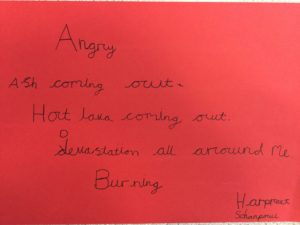 Angry
Ash coming out.
Hot lava coming out.
Devastation all around me
Burning